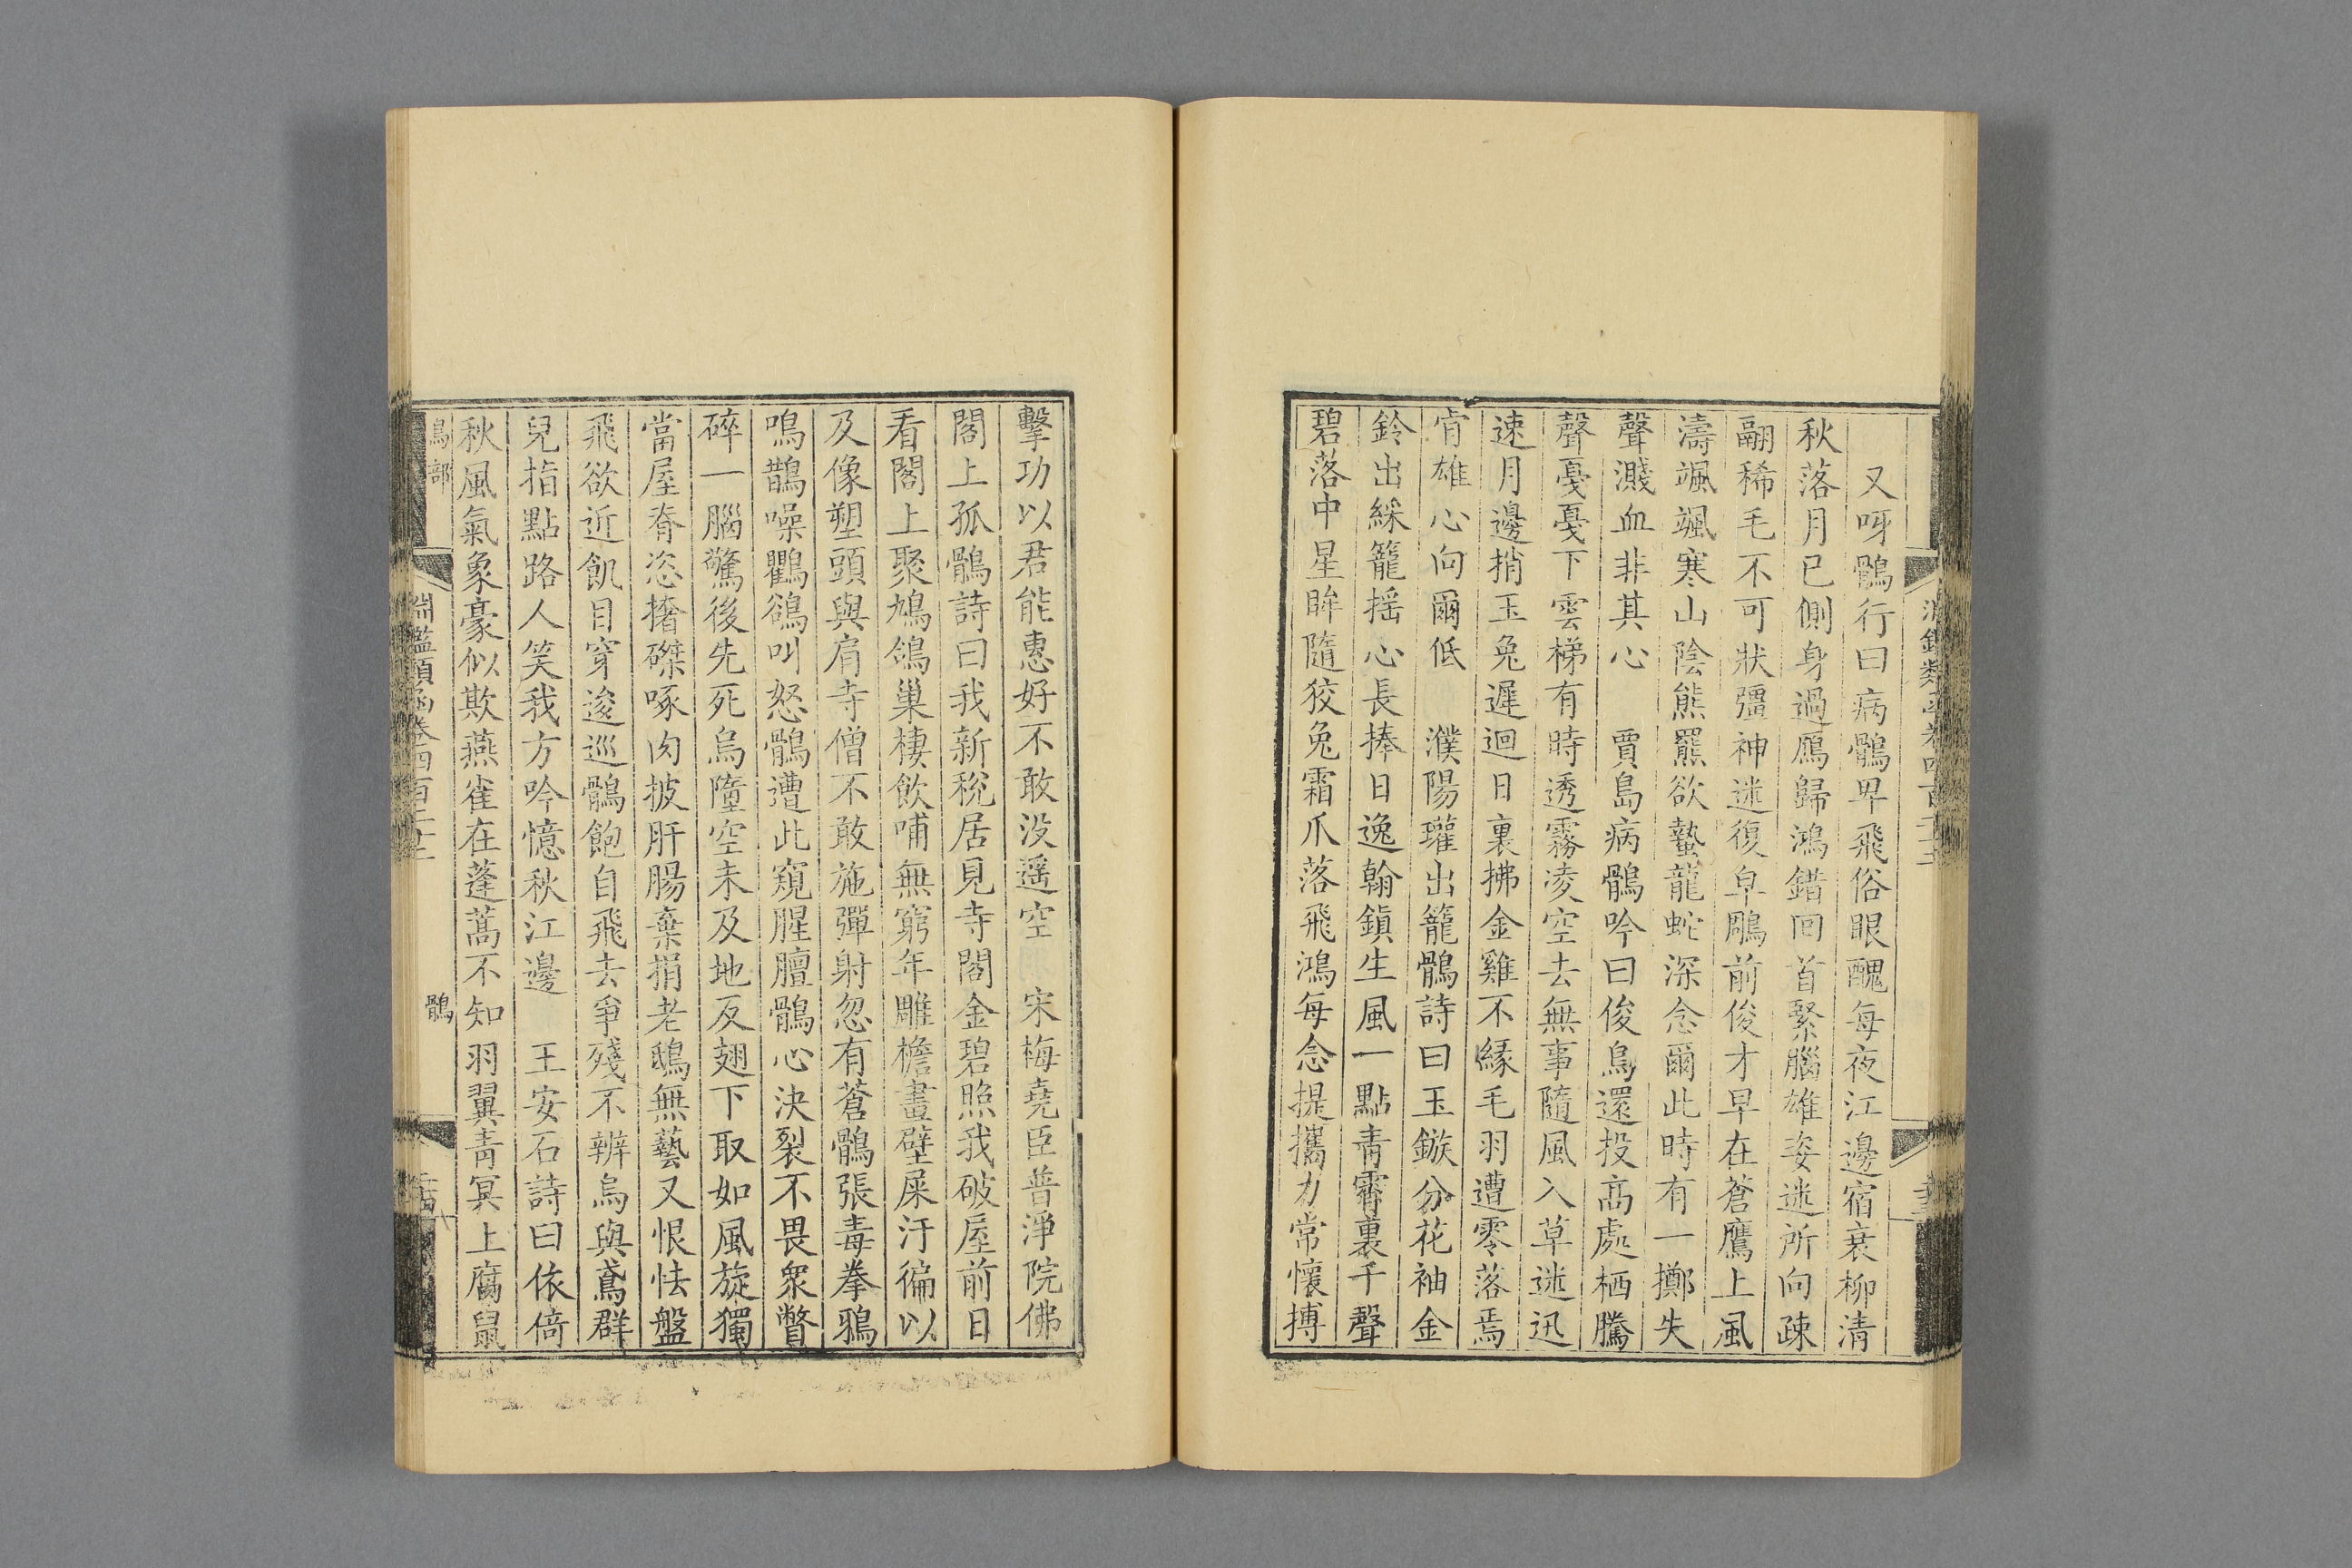 又呀鶻行曰病鶻卑飛俗眼醜每夜江邊宿衰柳清
秋落月已側身過鴈歸鴻錯回首緊腦雄姿迷所向疎
翮稀毛不可狀彊神迷復皁鵰前俊才早在蒼鷹上風
濤颯颯寒山陰熊羆欲蟄龍蛇深念爾此時有一擲失
聲濺血非其心　賈島病鶻吟曰俊鳥還投高處栖騰
聲戞戞下雲梯有時透霧凌空去無事隨風入草迷迅
速月邊捎玉兔遲迴日裏拂金雞不緣毛羽遭零落焉
肯雄心向爾低　濮陽瓘出籠鶻詩曰玉鏃分花袖金
鈴出綵籠摇心長捧日逸翰鎮生風一點青霄裏千聲
碧落中星眸隨狡兔霜爪落飛鴻每念提攜力常懷搏
擊功以君能惠好不敢没遥空　宋梅堯臣普淨院佛
閣上孤鶻詩曰我新稅居見寺閣金碧照我破屋前日
看閣上聚鳩鴿巢棲飲哺無窮年雕檐畫壁屎汙徧以
及像塑頭與肩寺僧不敢施彈射忽有蒼鶻張毒拳鴉
鳴鵲噪鸜鵒叫怒鶻遭此窺腥膻鶻心決裂不畏衆瞥
碎一腦驚後先死鳥墮空未及地反翅下取如風旋獨
當屋脊恣搘磔啄肉披肝腸棄捐老鴟無藝又恨怯盤
飛欲近飢目穿逡巡鶻飽自飛去爭殘不辨烏與鳶群
兒指點路人笑我方吟憶秋江邊　王安石詩曰依倚
秋風氣象豪似欺燕雀在蓬蒿不知羽翼青冥上腐鼠
鳥部　鶻